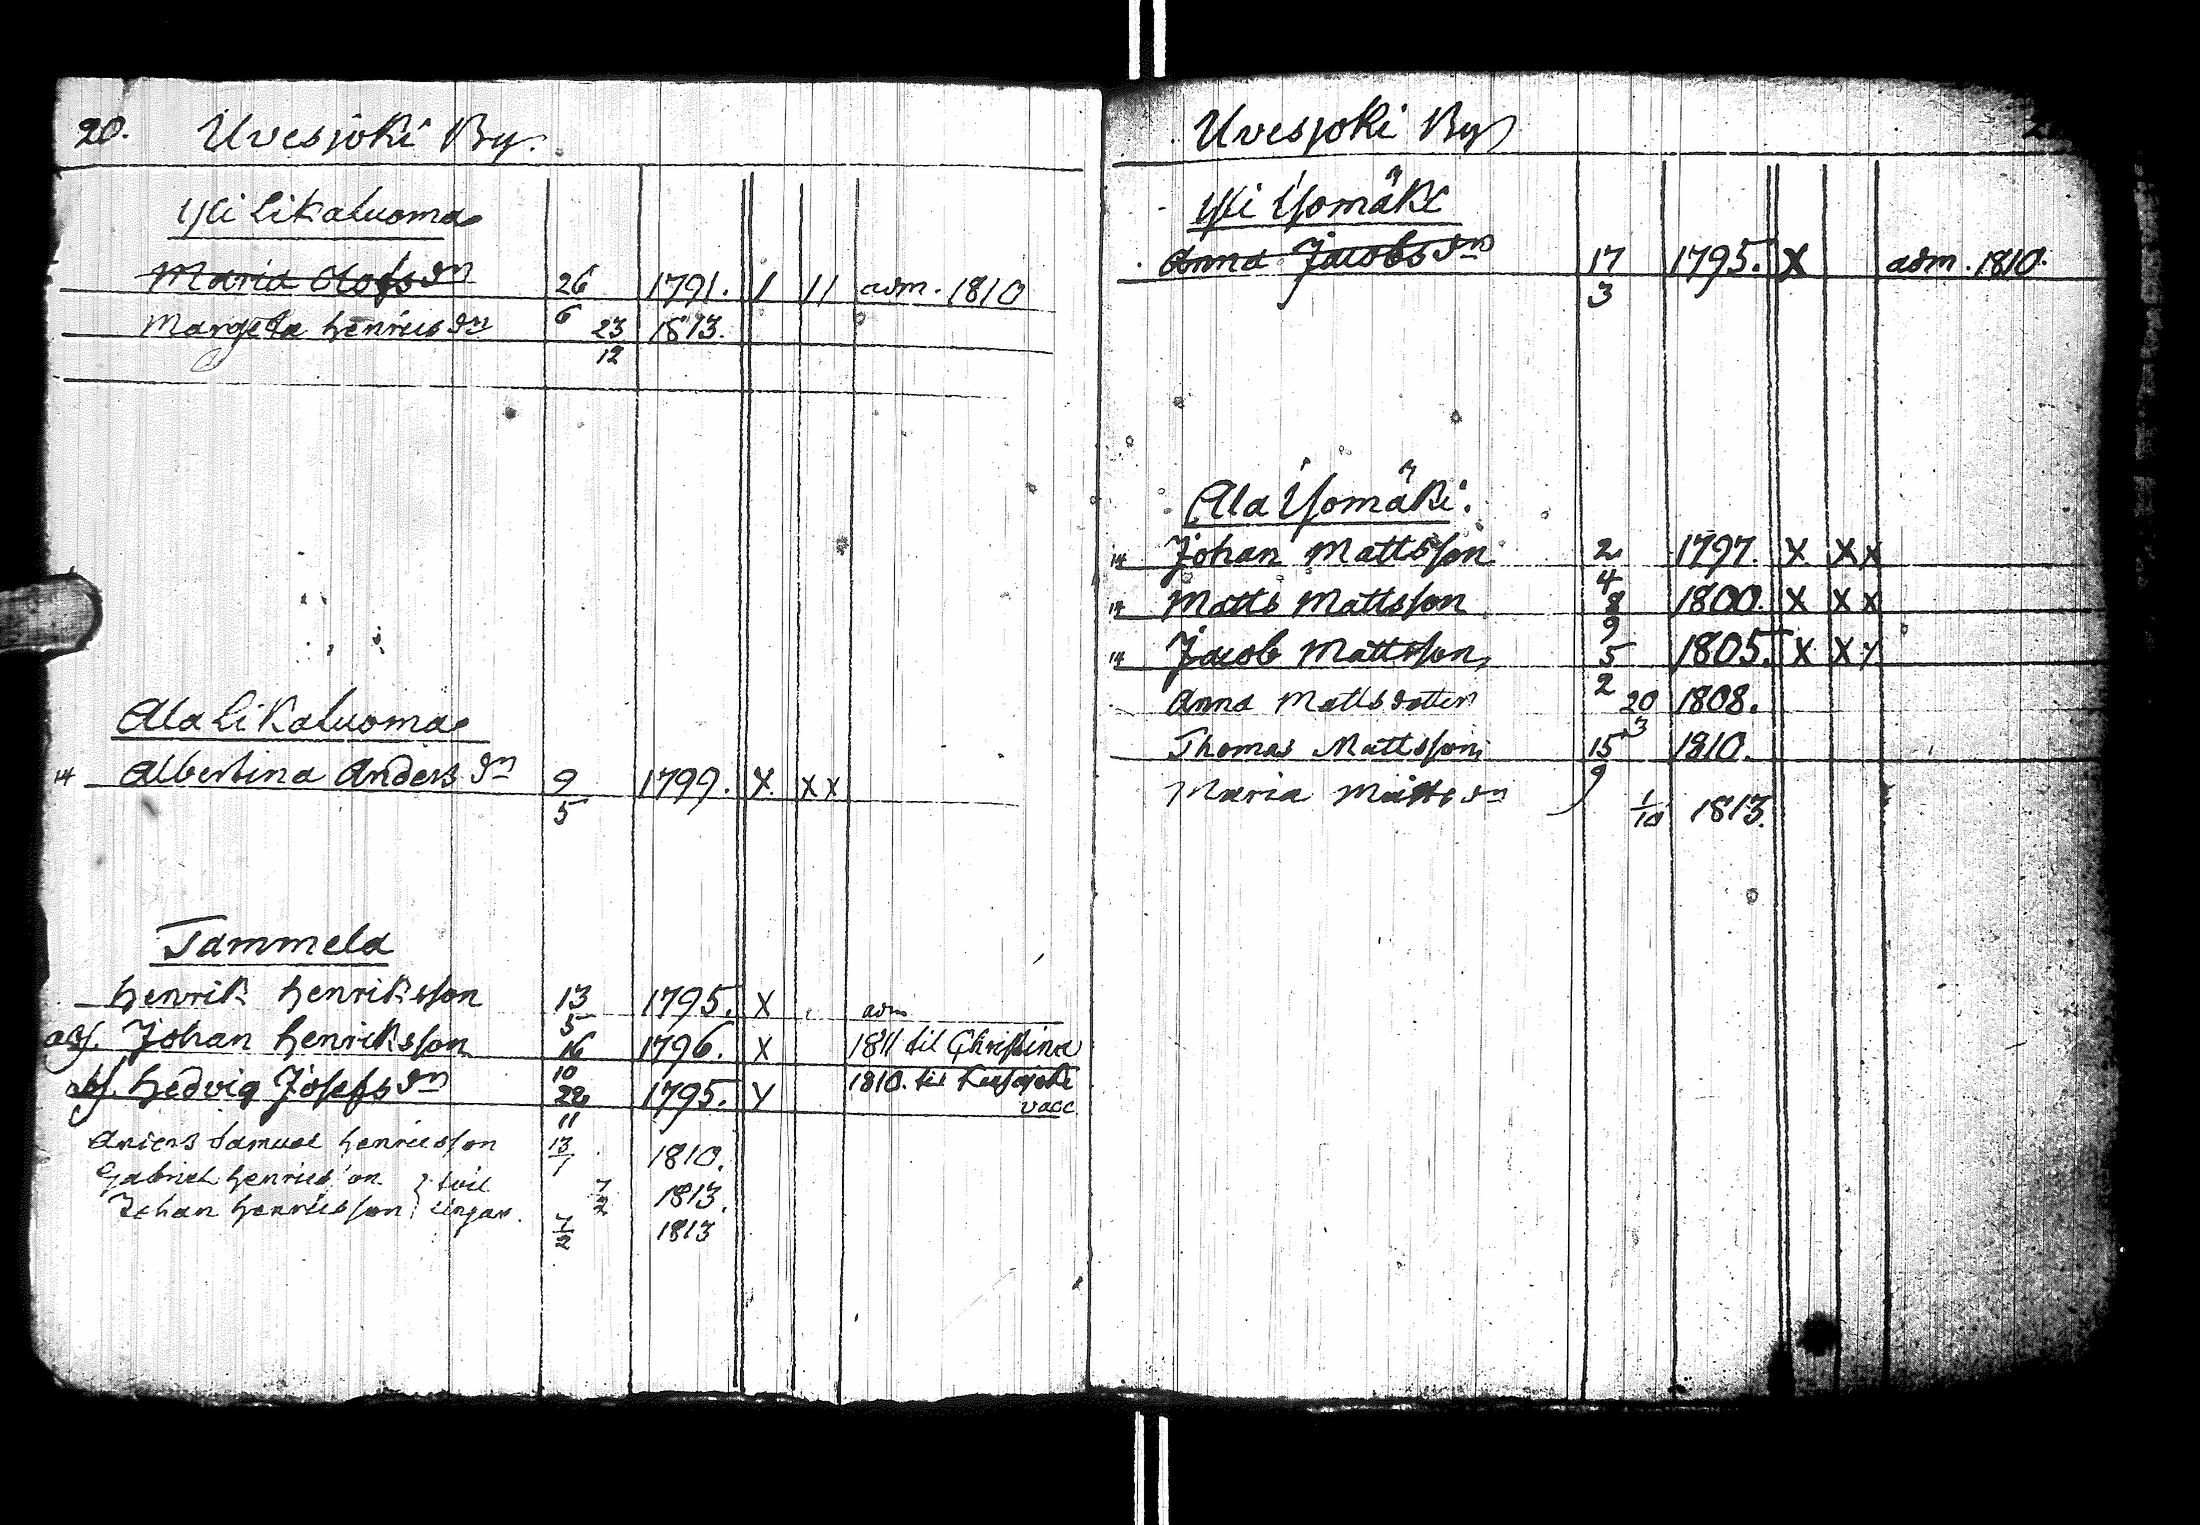 20. Uvesjoki By.
Yli Likaluoma
Maria Olofsdn 26/6 1791. I II adm. 1810
Margeta Henricsdn 23/12 1813.
Ala Likaluoma
14 Albertina Andersdn 9/5 1799. X. XX
Tammela
Henrik Henriksson 13/5 1795. X adm
Johan Henriksson 16/10 1796. X 1811 til Christina
Hedvig Josefsdn 22/11 1795. X 1810. til
vacc
Anders Samuel Henricsson 13/7 1810.
Gabriel Henricsson 7/2 1813.
Johan Henricsson 7/2 1813
Uvesjoki By
Yli Ysomäki
Anna Jacobsdn 17/3 1795. X adm. 1810.
Ala Ysomäki.
14 Johan Mattsson 2/4 1797. X XX
14 Matts Mattsson 8/9 1800. X XX
14 Jacob Mattsson 5/2 1805. X XX
Anna Mattsdotter 20/3 1808.
Thomas Mattsson 15/9 1810.
Maria Mattsdn 1/10 1813.